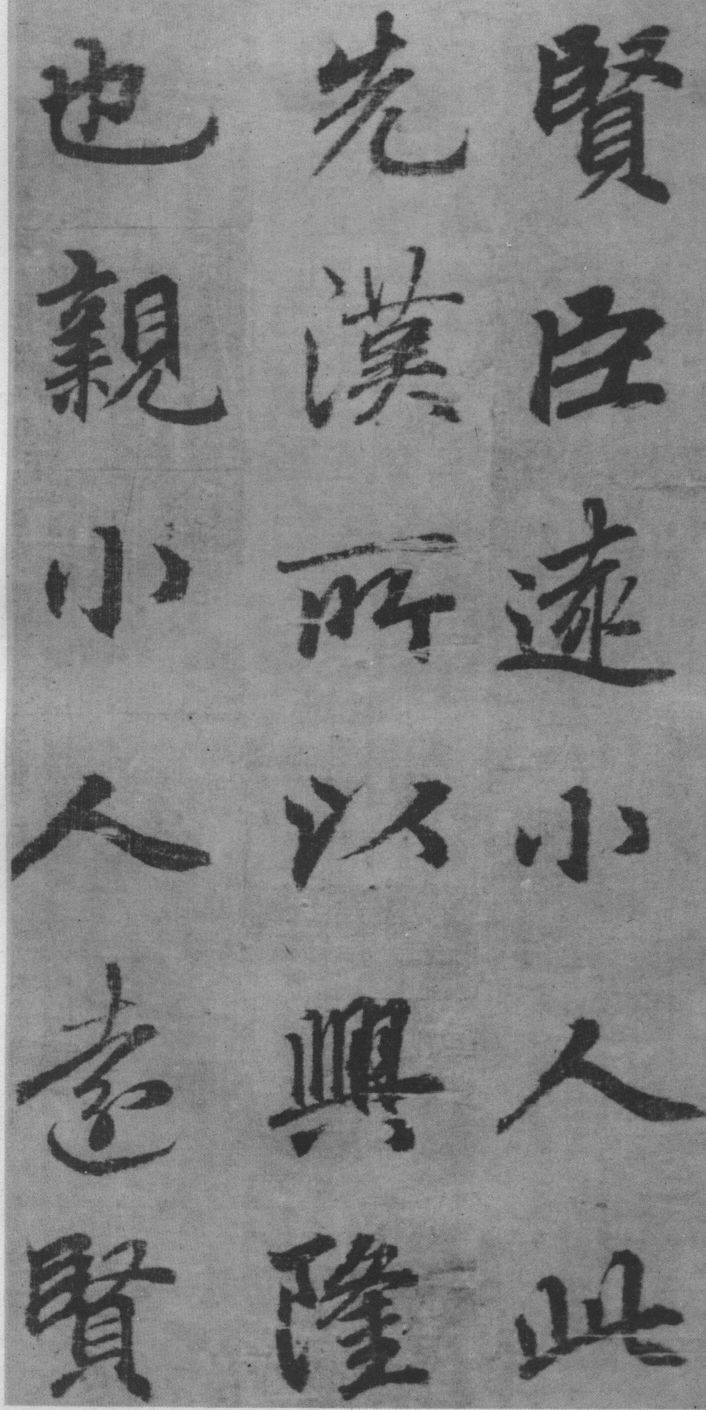 賢臣遠小人此
先漢所以興隆
也親小人遠賢